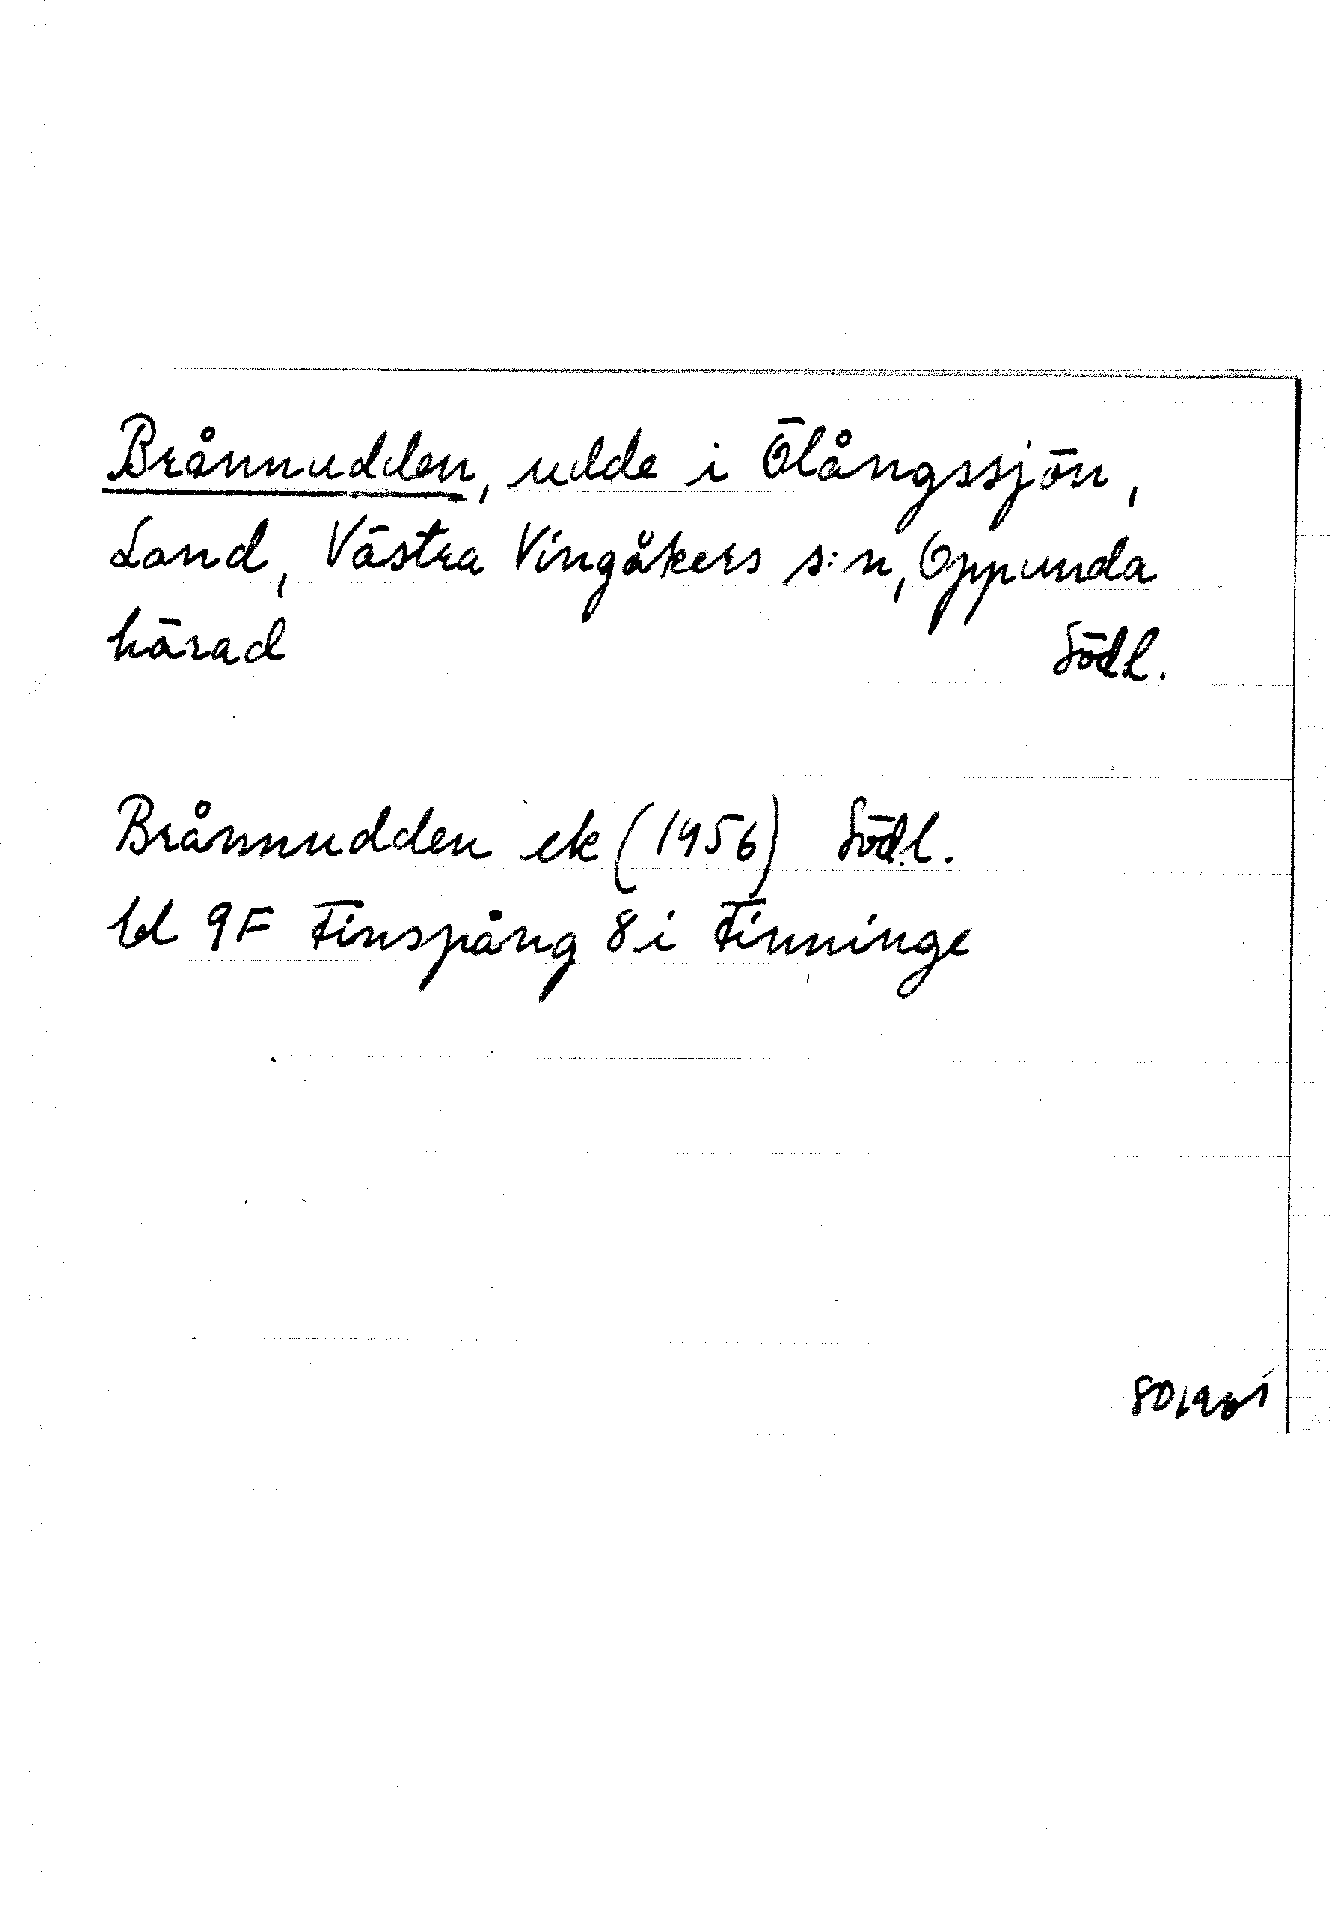 Brånnudden, udde i Ölångssjön,
Land, Västra Vingåkers s:n, Oppunda
härad Södl.
Brånnudden ek (1956) Södl.
bl 9F Finspång 8i Finninge